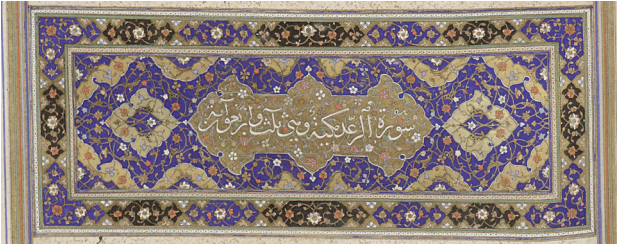 سورة الرعد مكية وهى ثلث واربعون آية